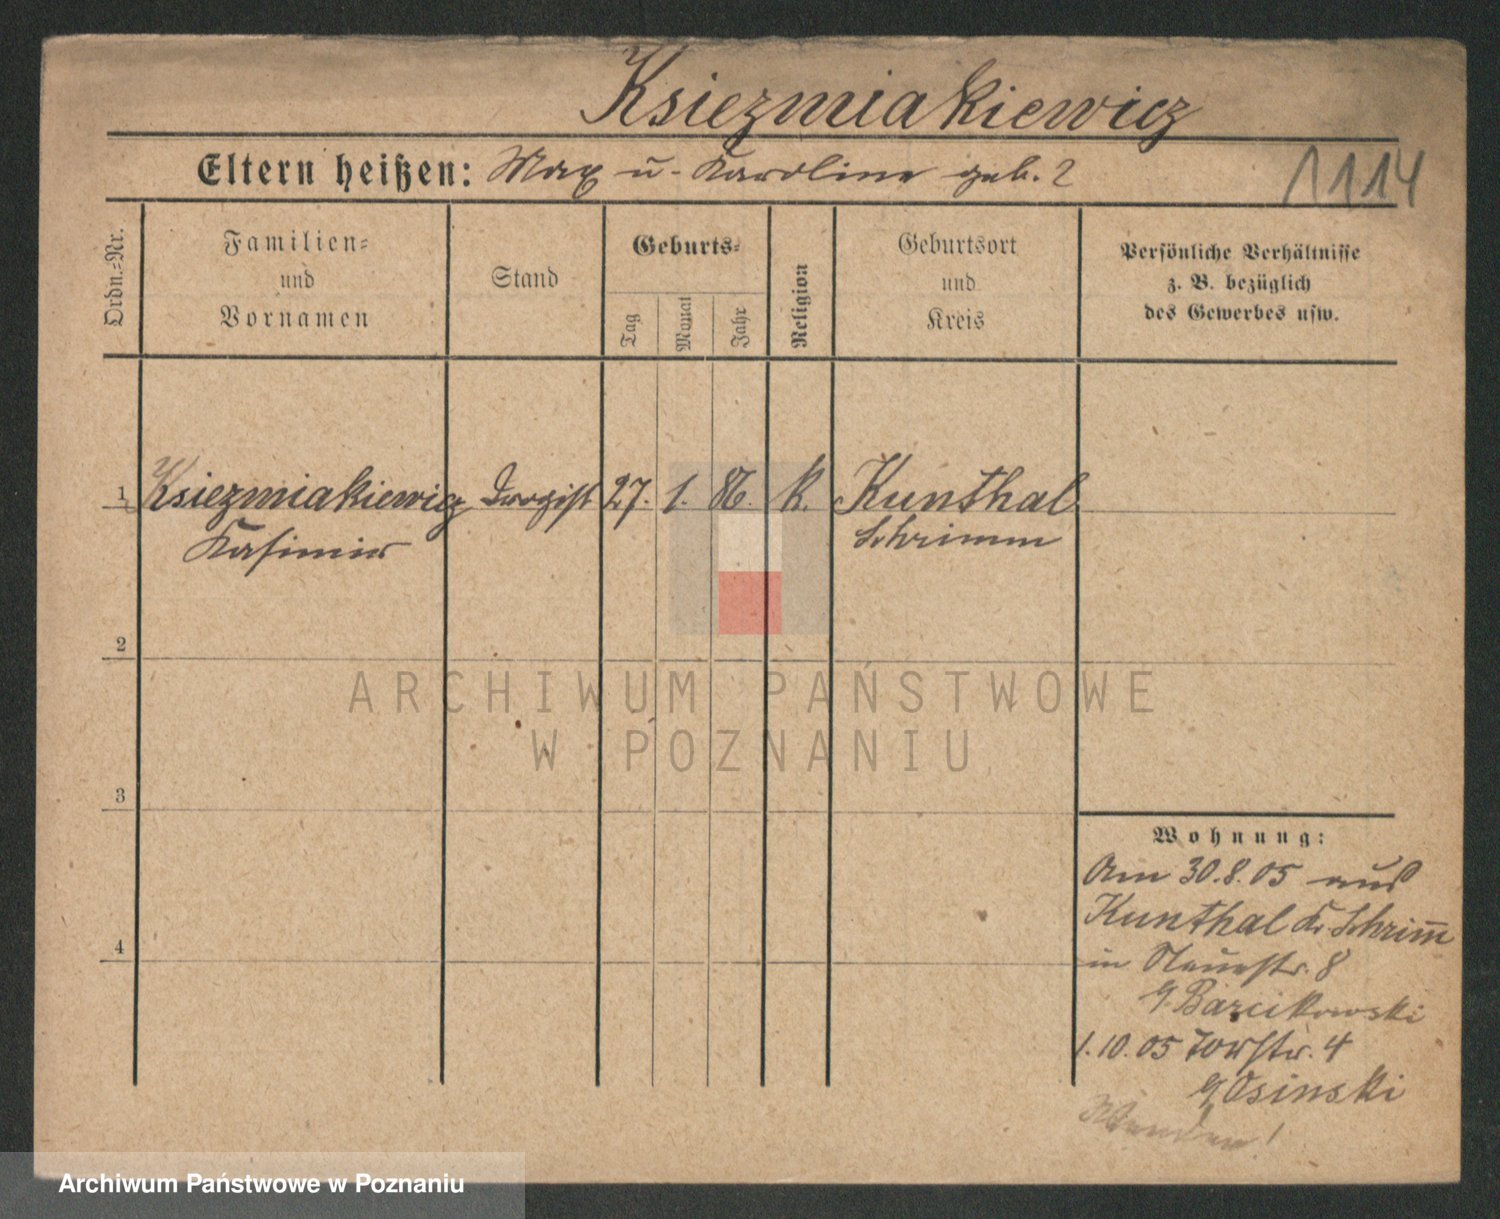 Ksiezmiakiewicz
Eltern heißen: Max u. Karoline geb. ?
1114
Ordn.=Nr.
Familien=
und
Vornamen
Stand
Geburts=
Tag
Monat
Jahr
Religion
Geburtsort
und
Kreis
Persönliche Verhältnisse
z. B. bezüglich
des Gewerbes usw.
1 Ksiezmiakiewicz Drogist 27. 1. 86. k. Kunthal
Kasimir Schrimm
2
3
4
ARCHIWUM PAŃSTWOWE
W POZNANIU
Wohnung:
Am 30.8.05 aus
Kunthal Kr. Schrimm
in Neuestr. 8
b/ Barcikowski
1.10.05 Torstr. 4
b/ Osinski
Wenden!
Archiwum Państwowe w Poznaniu